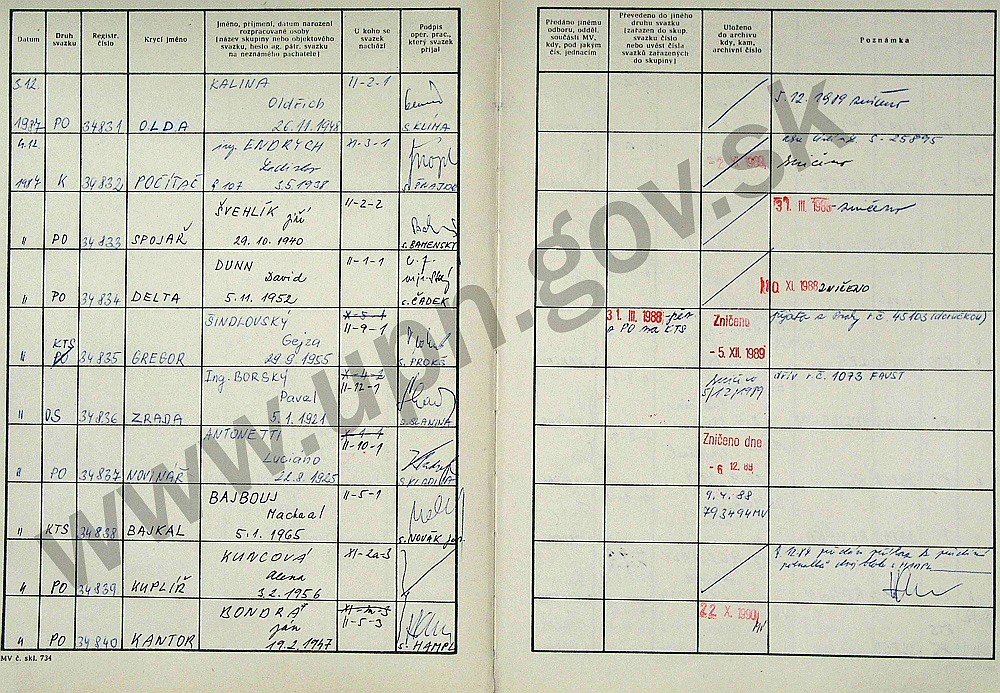 Datum
Druh svazku
Registr. číslo
Krycí jméno
Jméno, příjmení, datum narození rozpracované osoby (název skupiny nebo objektového svazku, heslo ag. pátr. svazku na neznámého pachatele)
U koho se svazek nachází
Podpis oper. prac., který svazek přijal
Předáno jinému odboru, odděl. součásti MV, kdy, pod jakým čís. jednacím
Převedeno do jiného druhu svazku (zařazen do skup. svazku číslo nebo uvést čísla svazků zařazených do skupiny)
Uloženo do archivu kdy, kam, archivní číslo
Poznámka
3.12. 1987 PO 34831 OLDA
KALINA
Oldřich
26.11.1948
II-2-1
s. KLÍMA
5.12.1989 zničeno
4.12. 1987 K 34832 POČÍTAČ
ing. ENDRYCH
Ladislav
3.5.1938
XI-3-1
S-25895
zničeno
" PO 34833 SPOJAŘ
ŠVEHLÍK Jiří
29.10.1940
II-2-2
s. BAMENSKÝ
31. III. 1988 zničeno
" PO 34834 DELTA
DUNN
David
5.11.1952
II-1-1
s. ČADEK
XI. 1988 ZNIČENO
" KTS PO 34835 GREGOR
ŠINDLOVSKÝ
Gejza
29.9.1955
X-5-1
II-9-1
s. PROKŠ
31. III. 1988 -
z PO na KTS
Zničeno
- 5. XII. 1989
r.č. 45103
" DS 34836 ZRADA
Ing. BORSKÝ
Pavel
5.1.1921
X-4-2
II-12-1
s. SLANINA
5/12/1989
dřív r.č. 1073 FAUST
" PO 34837 NOVINÁŘ
ANTONETTI
Luciano
22.8.1925
II-10-1
s. KLADIVA
Zničeno dne
- 6. 12. 89
" KTS 34838 BAJKAL
BAJBOUJ
Machaal
5.1.1965
II-5-1
s. NOVÁK jar.
9.4.88
793494 MV
" PO 34839 KUPLÍŘ
KUNCOVÁ
Alena
3.2.1956
XI-2a-3
" PO 34840 KANTOR
BONDRA
Ján
19.2.1947
II-5-3
s. HAMPL
22 X. 1990
MV
MV č. skl. 734
www.upn.gov.sk